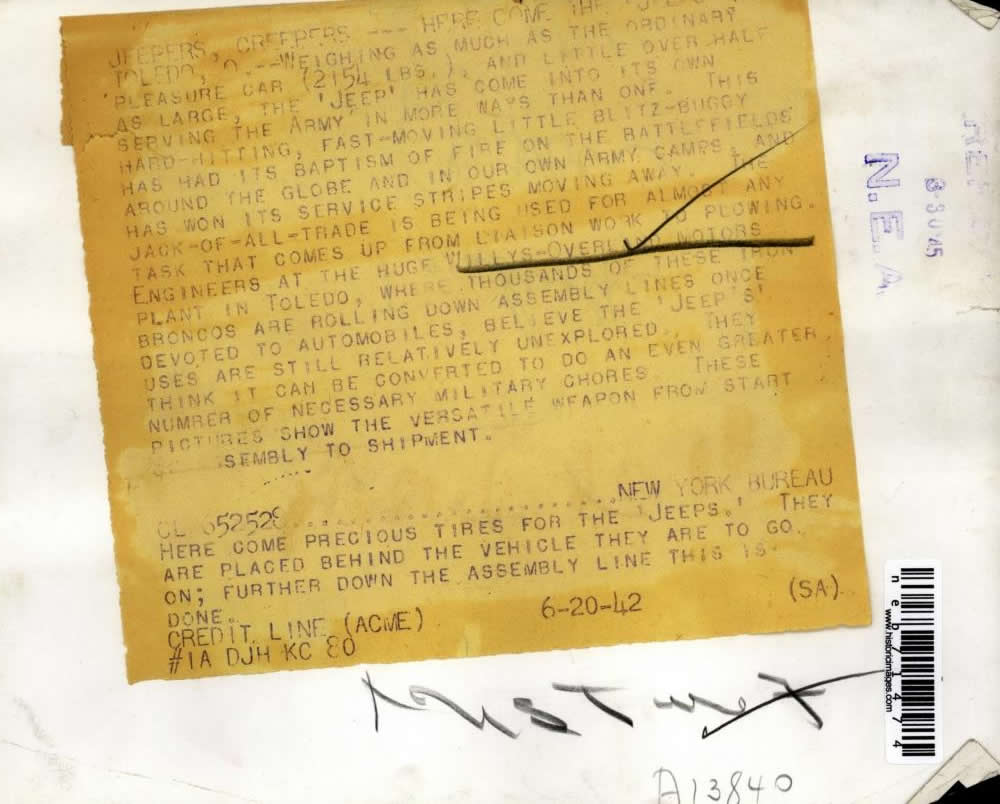 JEEPERS, CREEPERS --- HERE COME THE
TOLEDO, O.--WEIGHING AS MUCH AS THE ORDINARY
PLEASURE CAR (2154 LBS.), AND LITTLE OVER HALF
AS LARGE, THE 'JEEP' HAS COME INTO ITS OWN
SERVING THE ARMY IN MORE WAYS THAN ONE. THIS
HARD-HITTING, FAST-MOVING LITTLE BLITZ-BUGGY
HAS HAD ITS BAPTISM OF FIRE ON THE BATTLEFIELDS
AROUND THE GLOBE AND IN OUR OWN ARMY CAMPS, AND
HAS WON ITS SERVICE STRIPES MOVING AWAY. THE
JACK-OF-ALL-TRADE IS BEING USED FOR ALMOST ANY
TASK THAT COMES UP FROM LIAISON WORK TO PLOWING.
ENGINEERS AT THE HUGE WILLYS-OVERLAND MOTORS
PLANT IN TOLEDO, WHERE THOUSANDS OF THESE IRON
BRONCOS ARE ROLLING DOWN ASSEMBLY LINES ONCE
DEVOTED TO AUTOMOBILES, BELIEVE THE 'JEEP'S'
USES ARE STILL RELATIVELY UNEXPLORED. THEY
THINK IT CAN BE CONVERTED TO DO AN EVEN GREATER
NUMBER OF NECESSARY MILITARY CHORES. THESE
PICTURES SHOW THE VERSATILE WEAPON FROM START
SEMBLY TO SHIPMENT.
CL 652528..............................NEW YORK BUREAU
HERE COME PRECIOUS TIRES FOR THE 'JEEPS.' THEY
ARE PLACED BEHIND THE VEHICLE THEY ARE TO GO
ON; FURTHER DOWN THE ASSEMBLY LINE THIS IS
DONE.
CREDIT LINE (ACME) 6-20-42 (SA)
#1A DJH KC 80
N.E.A.
neb71474
www.historicimages.com
A13840